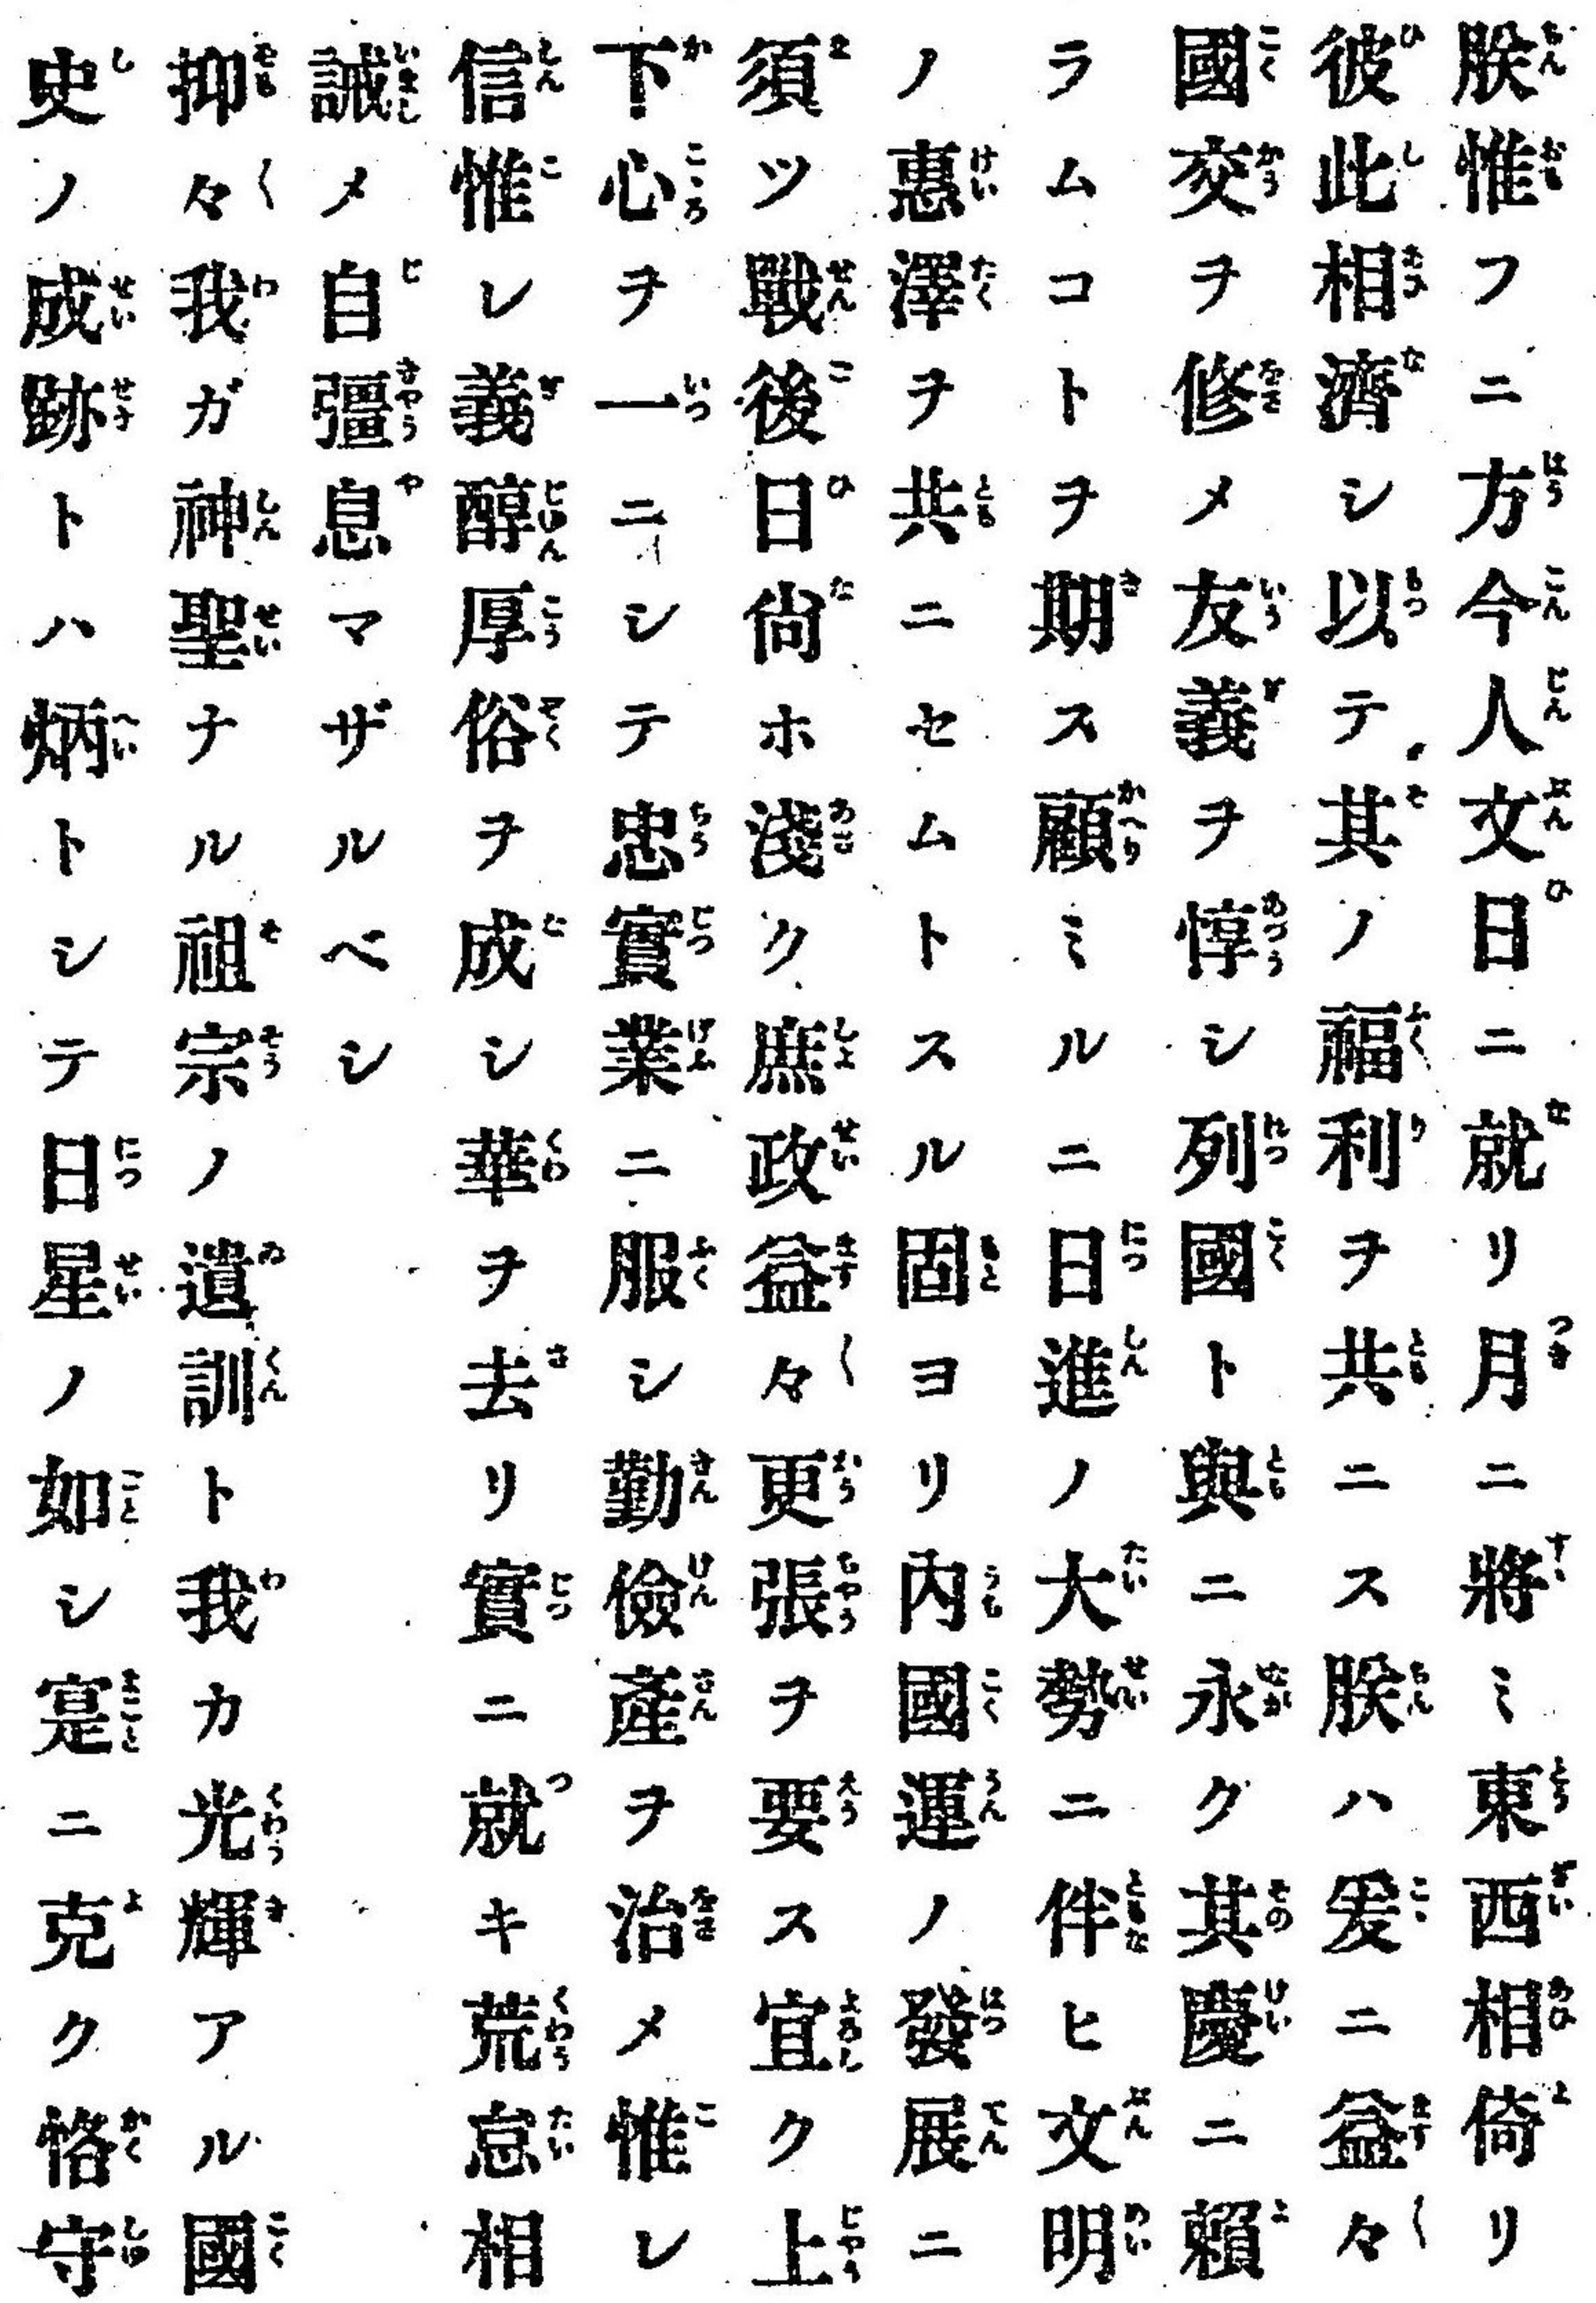 朕惟フニ方今人文日ニ就リ月ニ將ミ東西相倚リ
彼此相濟シ以テ其ノ福利ヲ共ニス朕ハ爰ニ益々
國交ヲ修メ友義ヲ惇シ列國ト與ニ永ク其慶ニ賴
ラムコトヲ期ス顧ミルニ日進ノ大勢ニ伴ヒ文明
ノ惠澤ヲ共ニセムトスル固ヨリ內國運ノ發展ニ
須ツ戰後日尙ホ淺ク庶政益々更張ヲ要ス宜ク上
下心ヲ一ニシテ忠實業ニ服シ勤儉產ヲ治メ惟レ
信惟レ義醇厚俗ヲ成シ華ヲ去リ實ニ就キ荒怠相
誡メ自彊息マザルベシ
抑々我ガ神聖ナル祖宗ノ遺訓ト我カ光輝アル國
史ノ成跡トハ炳トシテ日星ノ如シ寔ニ克ク恪守